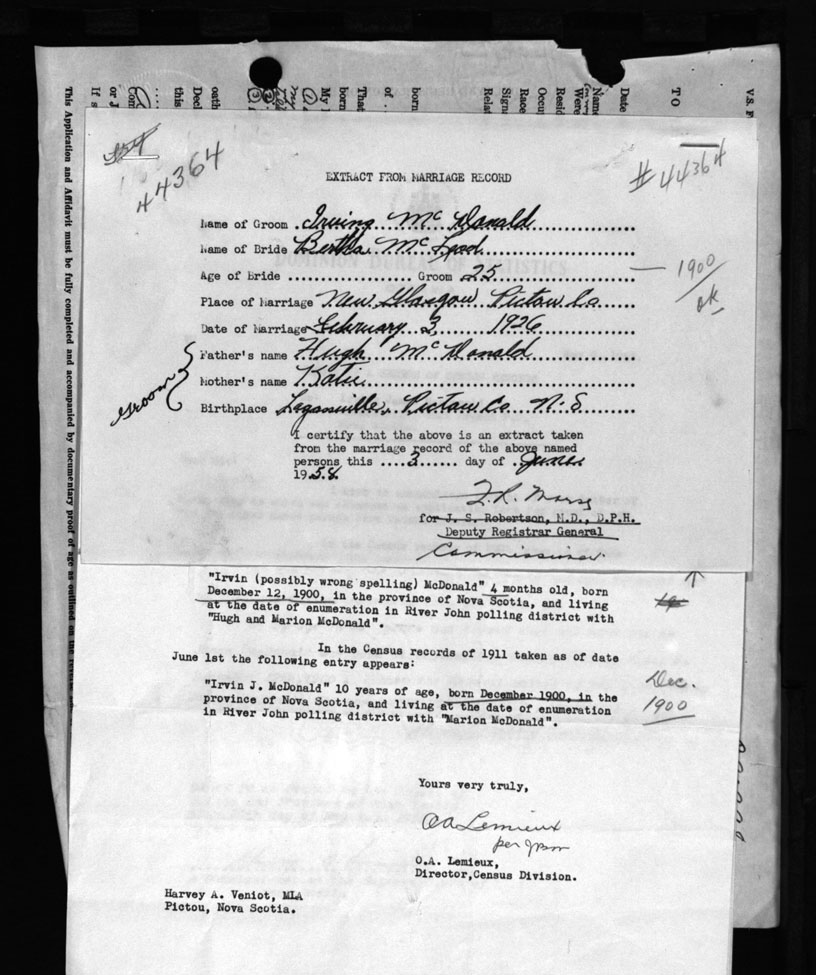 V.S. F
TO
Date
Name
Were
Resid
Occu
Race
Sign
Relat
born
of
That
born
My
oath
Decl
this
or J
If s
This Application and Affidavit must be fully completed and accompanied by documentary proof of age as outlined on the
44364
#44364
EXTRACT FROM MARRIAGE RECORD
Name of Groom Irving McDonald
Name of Bride Bertha McLeod
Age of Bride .................. Groom 25
— 1900
ok
Place of Marriage New Glasgow Pictou Co
Date of Marriage February 3 1926
Groom
Father's name Hugh McDonald
Mother's name Katie
Birthplace Loganville, Pictou Co N.S
I certify that the above is an extract taken
from the marriage record of the above named
persons this ....3...... day of June
1958.
for J. S. Robertson, M.D., D.P.H.
Deputy Registrar General
Commissioner.
"Irvin (possibly wrong spelling) McDonald" 4 months old, born
December 12, 1900, in the province of Nova Scotia, and living
at the date of enumeration in River John polling district with
"Hugh and Marion McDonald".
In the Census records of 1911 taken as of date
June 1st the following entry appears:
"Irvin J. McDonald" 10 years of age, born December 1900, in the
province of Nova Scotia, and living at the date of enumeration
in River John polling district with "Marion McDonald".
Dec.
1900
Yours very truly,
OA Lemieux
per
O.A. Lemieux,
Director,Census Division.
Harvey A. Veniot, MLA
Pictou, Nova Scotia.